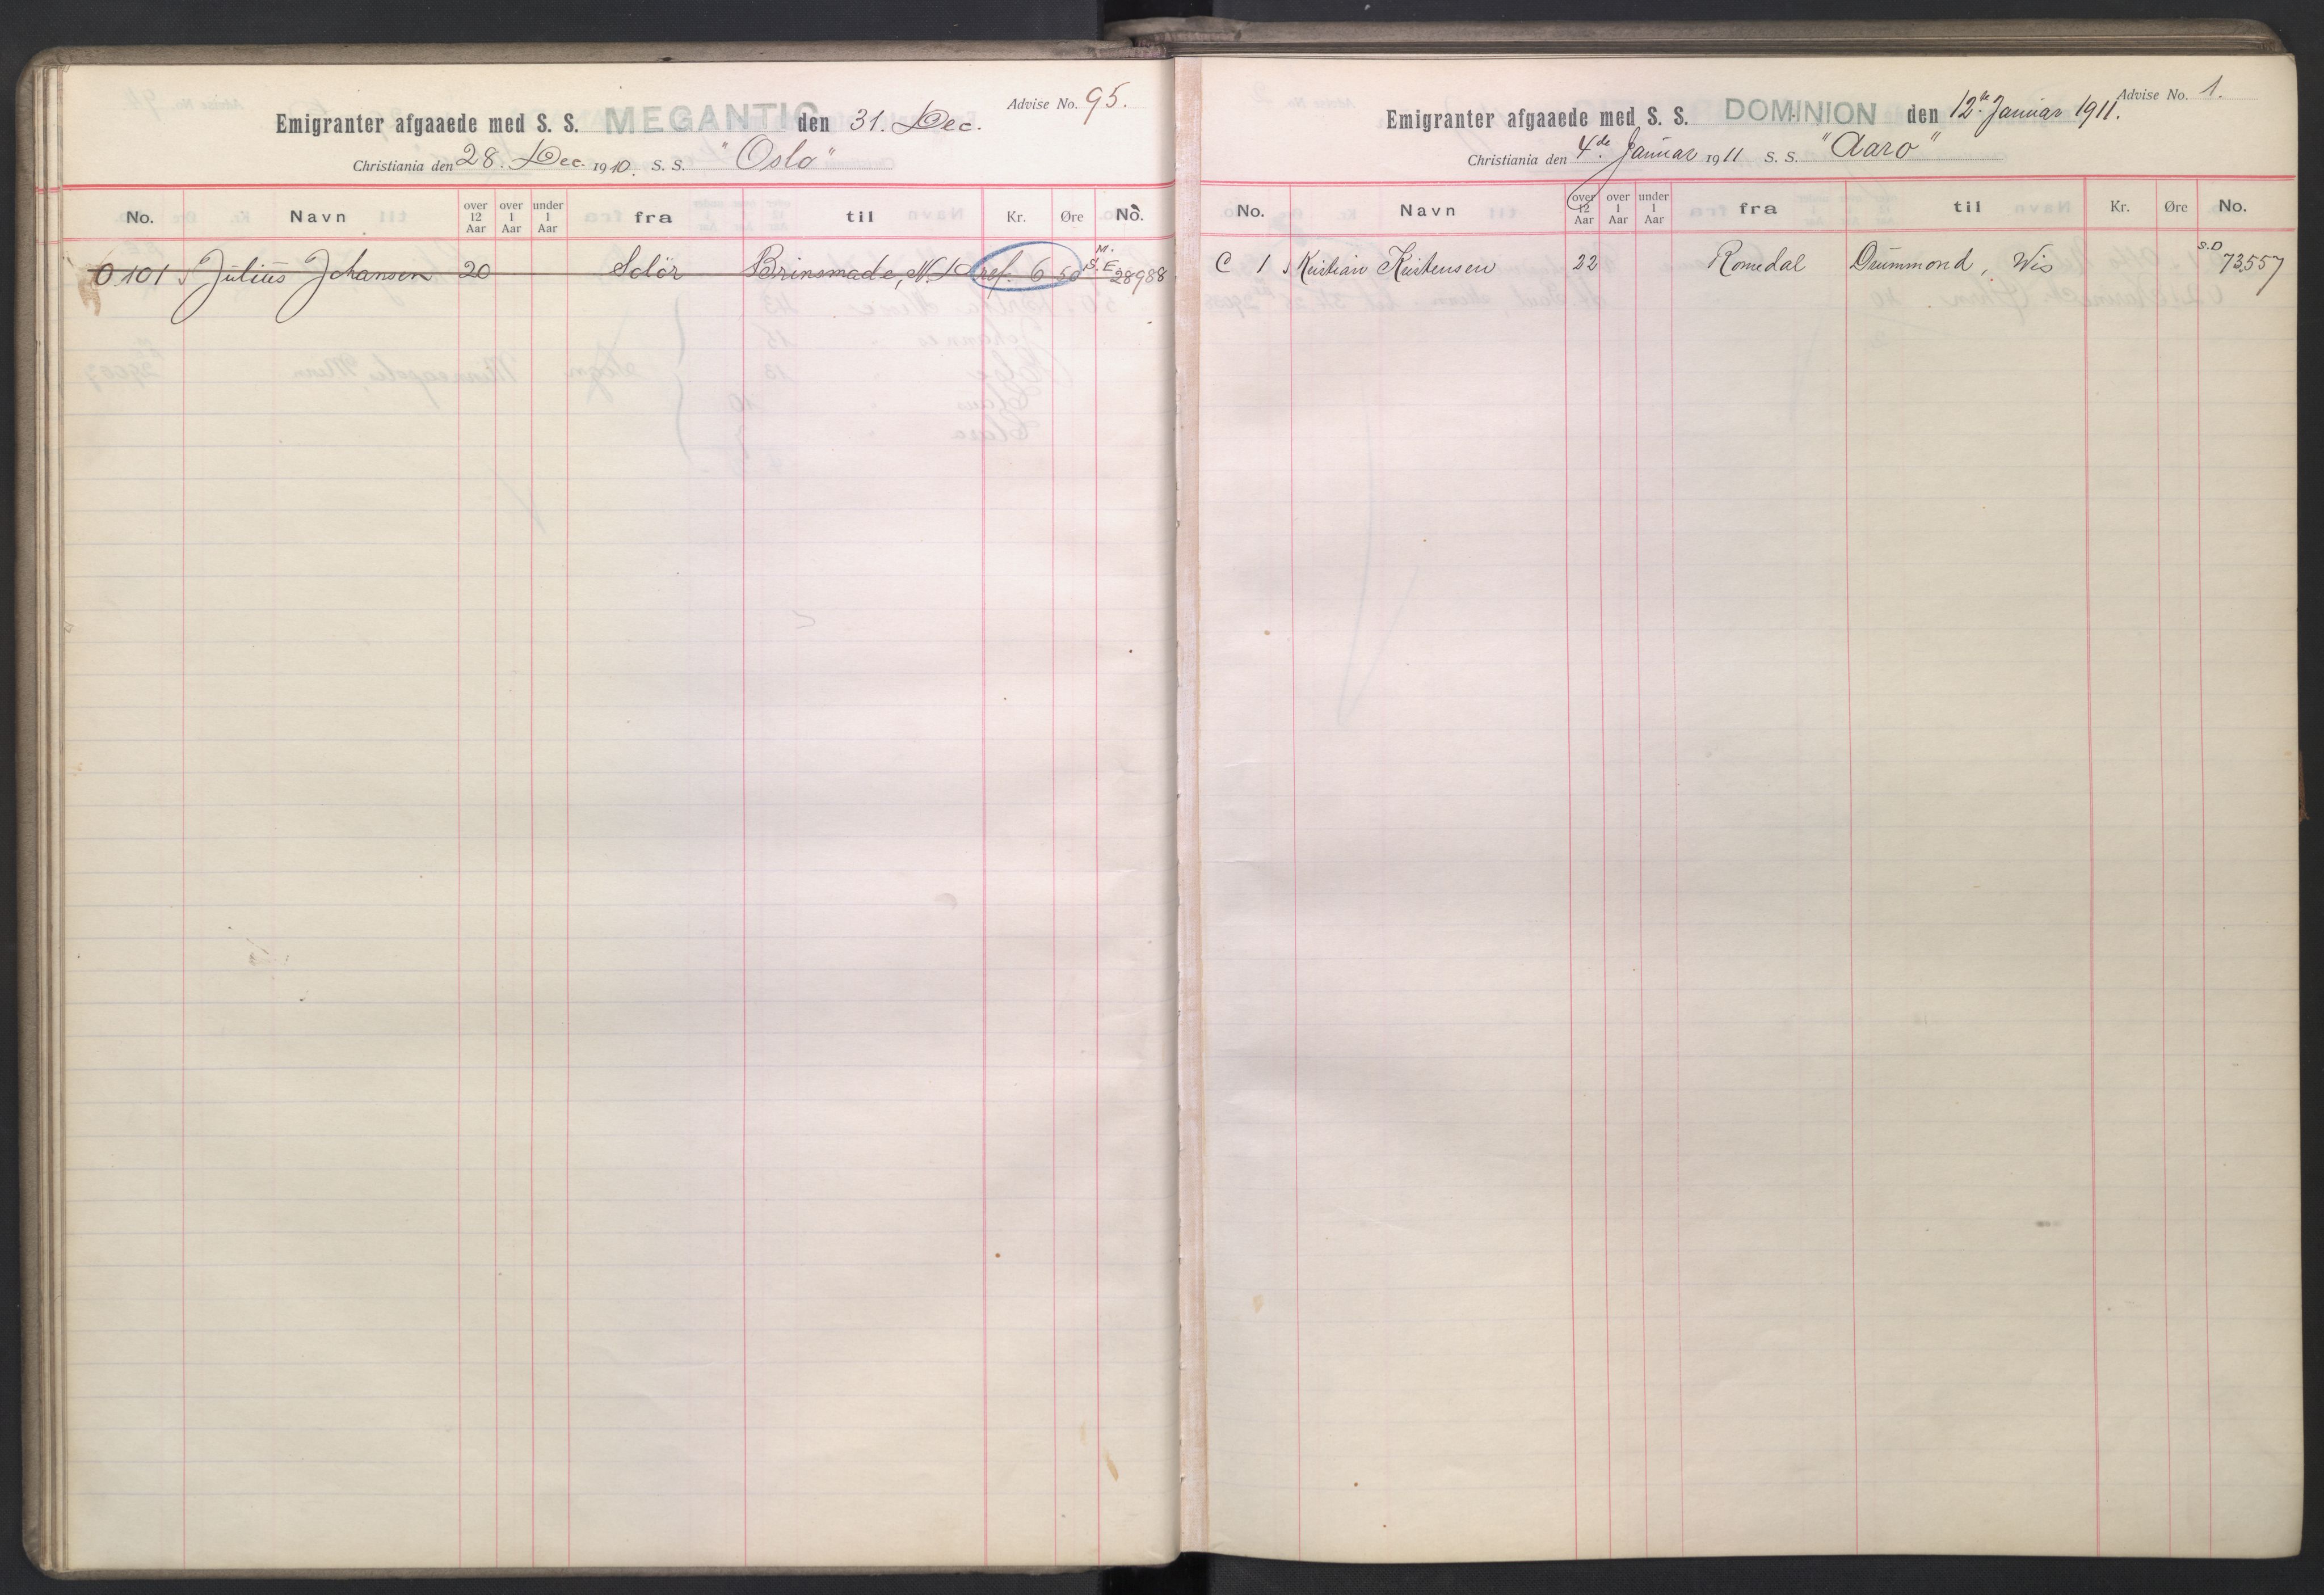 Advise No. 95.
Emigranter afgaaede med S. S. MEGANTIC den 31. Dec.
Christiania den 28. Dec. 1910. S. S. "Oslo"
No. Navn over 12 Aar over 1 Aar under 1 Aar fra til Kr. Øre No.
O 101 Julius Johansen 20 Solör Brinsmade, N. D ref. 6 50 M. S. E 28988
Advise No. 1.
Emigranter afgaaede med S. S. DOMINION den 12te Januar 1911.
Christiania den 4de Januar 1911 S. S. "Aaro"
No. Navn over 12 Aar over 1 Aar under 1 Aar fra til Kr. Øre No.
C 1 Kristian Kristensen 22 Romedal Drummond, Wis S.D 73557